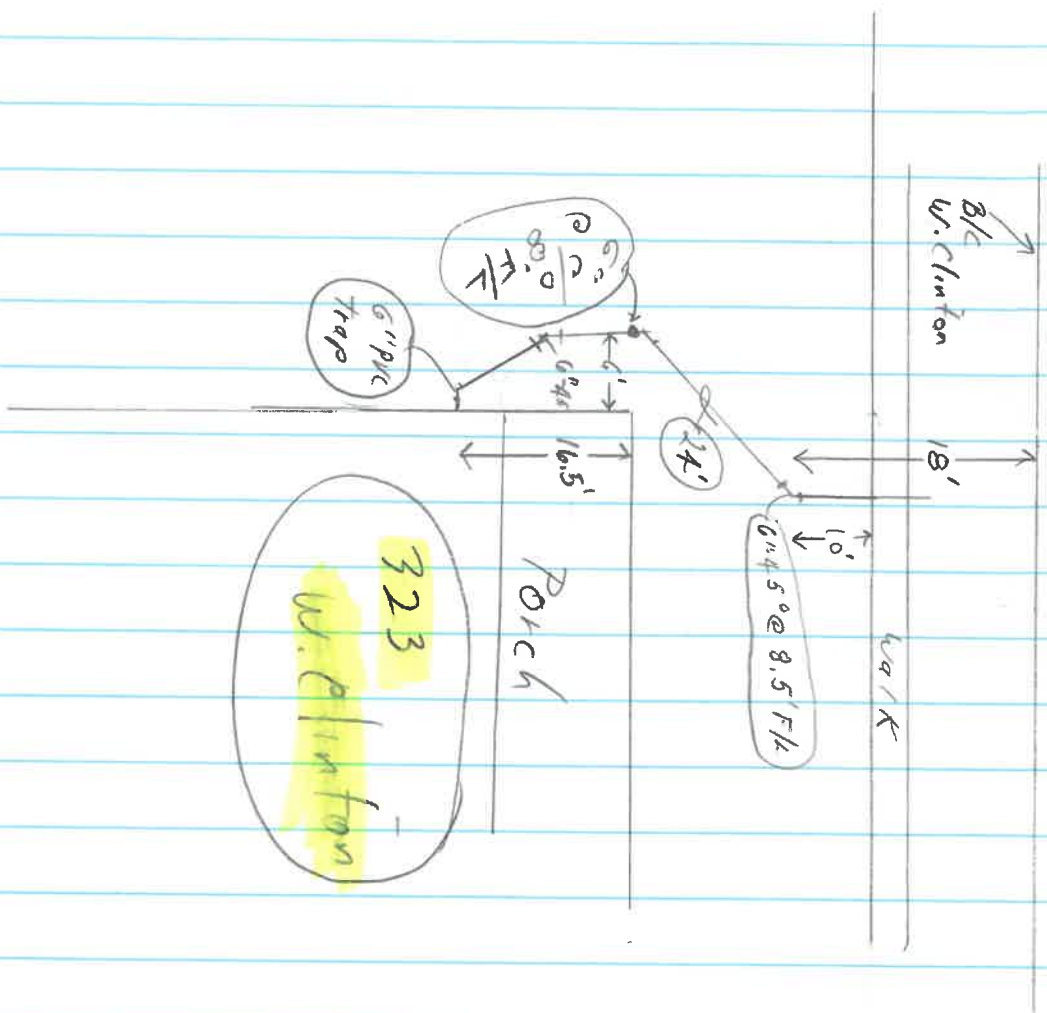 B/c
W. Clinton
18'
walk
10'
6"45°@ 8.5' F/L
24'
6" C/O
@ 8' F/L
6'
6"45
16.5'
6" pvc
trap
Porch
323
W. Clinton